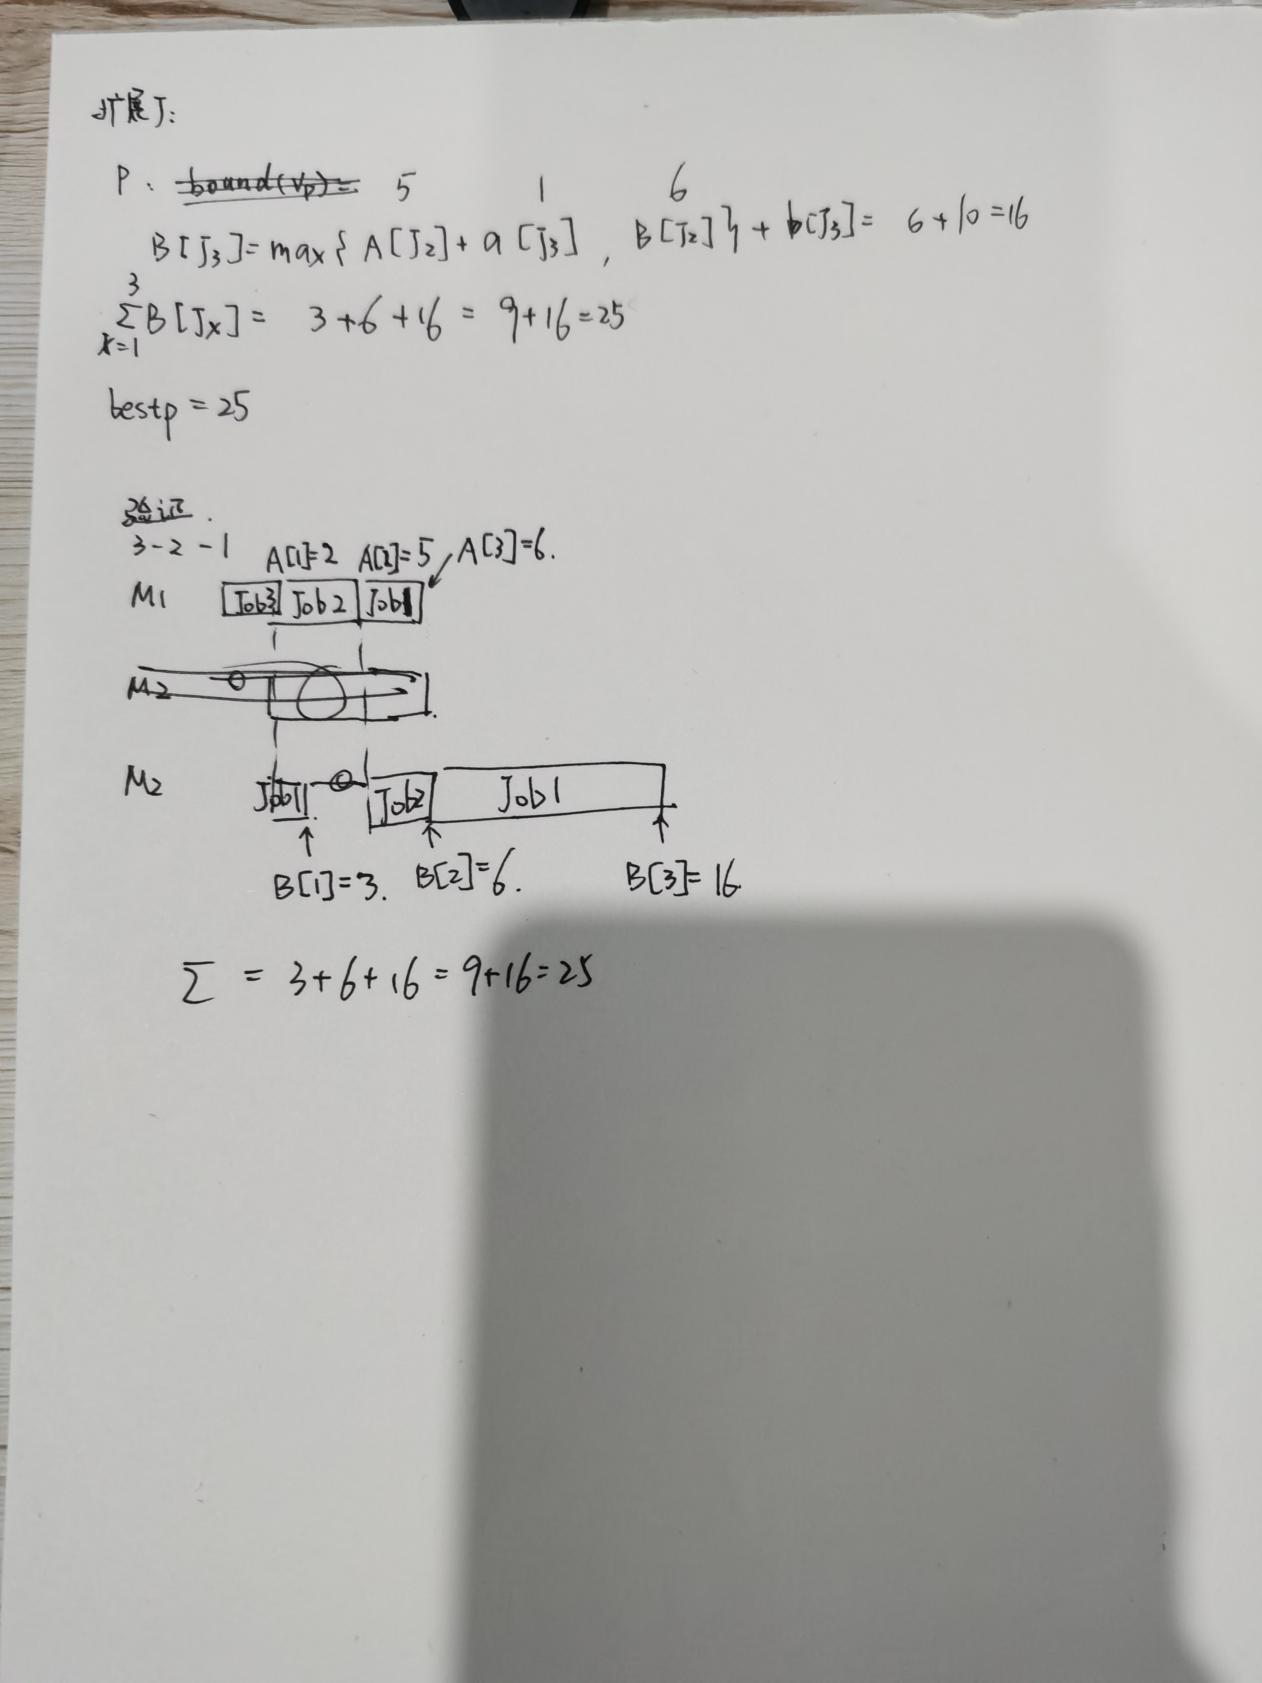 扩展J:
P. bound(Vp)= 5 1 6
B[J3]=max{A[J2]+a[J3], B[J2]}+b[J3]= 6+10=16
3
ΣB[Jx]= 3+6+16=9+16=25
x=1
bestp=25
验证.
3-2-1 A[1]=2 A[2]=5 A[3]=6.
M1 Job3 Job2 Job1
M2
M2 Job1 Job2 Job1
B[1]=3. B[2]=6. B[3]=16
Σ = 3+6+16=9+16=25